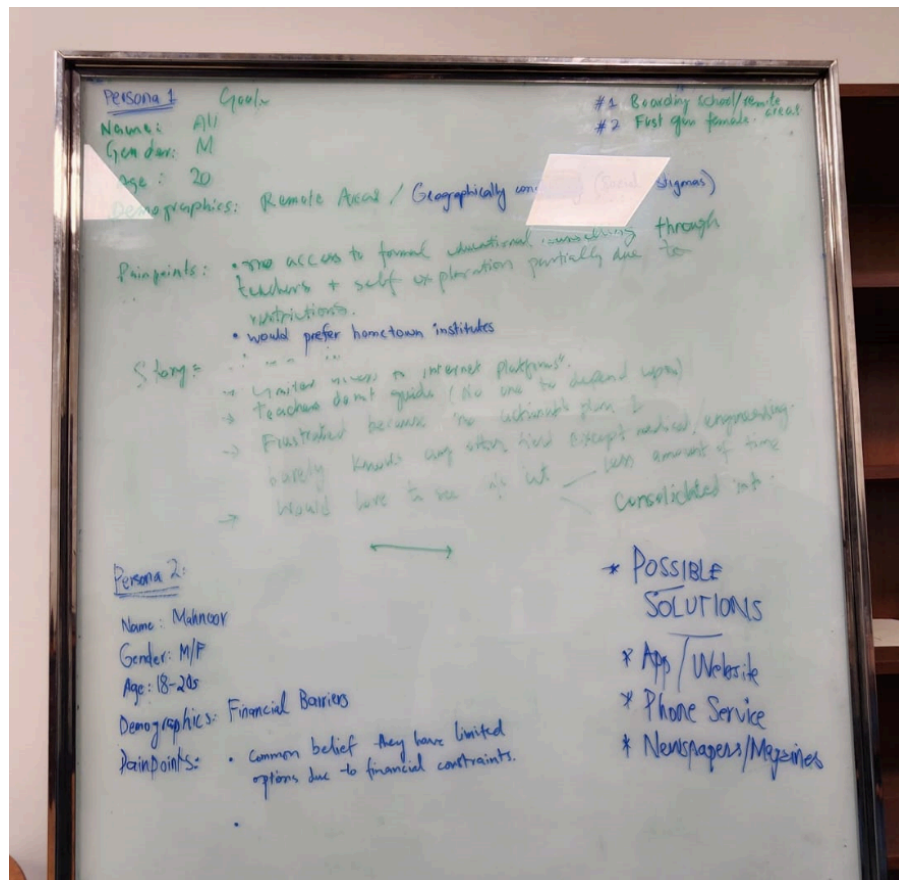 Persona 1 Goals
#1 Boarding school/remote areas
#2 First gen female.
Name: Ali
Gender: M
Age: 20
Demographics: Remote Areas / Geographically (Social Stigmas)
Painpoints: • no access to formal educational counselling through
teachers + self exploration partially due to
restrictions.
• would prefer hometown institutes
Story:
→ Limited access to internet platforms.
→ teachers dont guide (No one to depend upon)
→ Frustrated because no actionable plan &
rarely knows any other field except medical/engineering.
→ Would love to see less amount of time
Consolidated info.
Persona 2:
Name: Mahnoor
Gender: M/F
Age: 18-20s
Demographics: Financial Barriers
Painpoints: • Common belief they have limited
options due to financial constraints.
•
* POSSIBLE
SOLUTIONS
* App/Website
* Phone Service
* Newspapers/Magzines